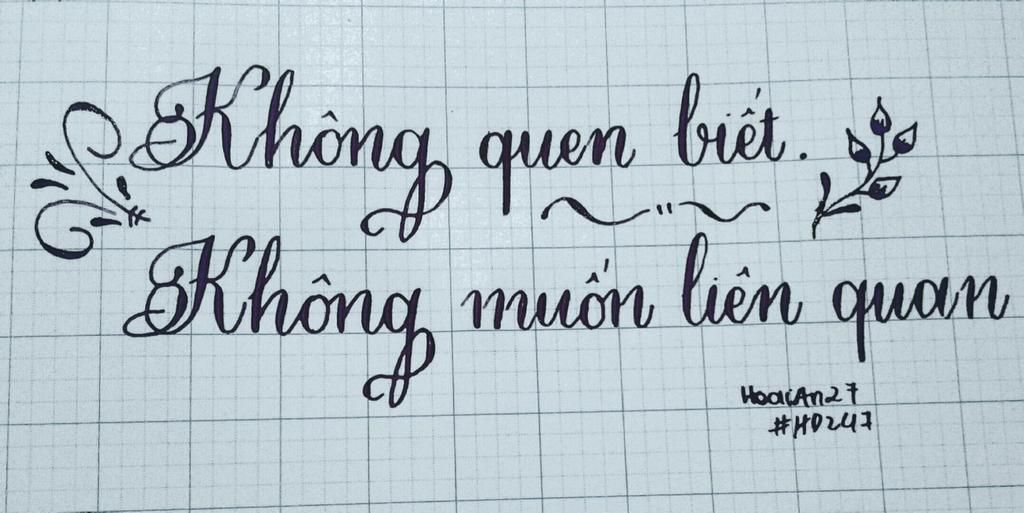 Không quen biết.
Không muốn liên quan
HoaiAn27
#HD247